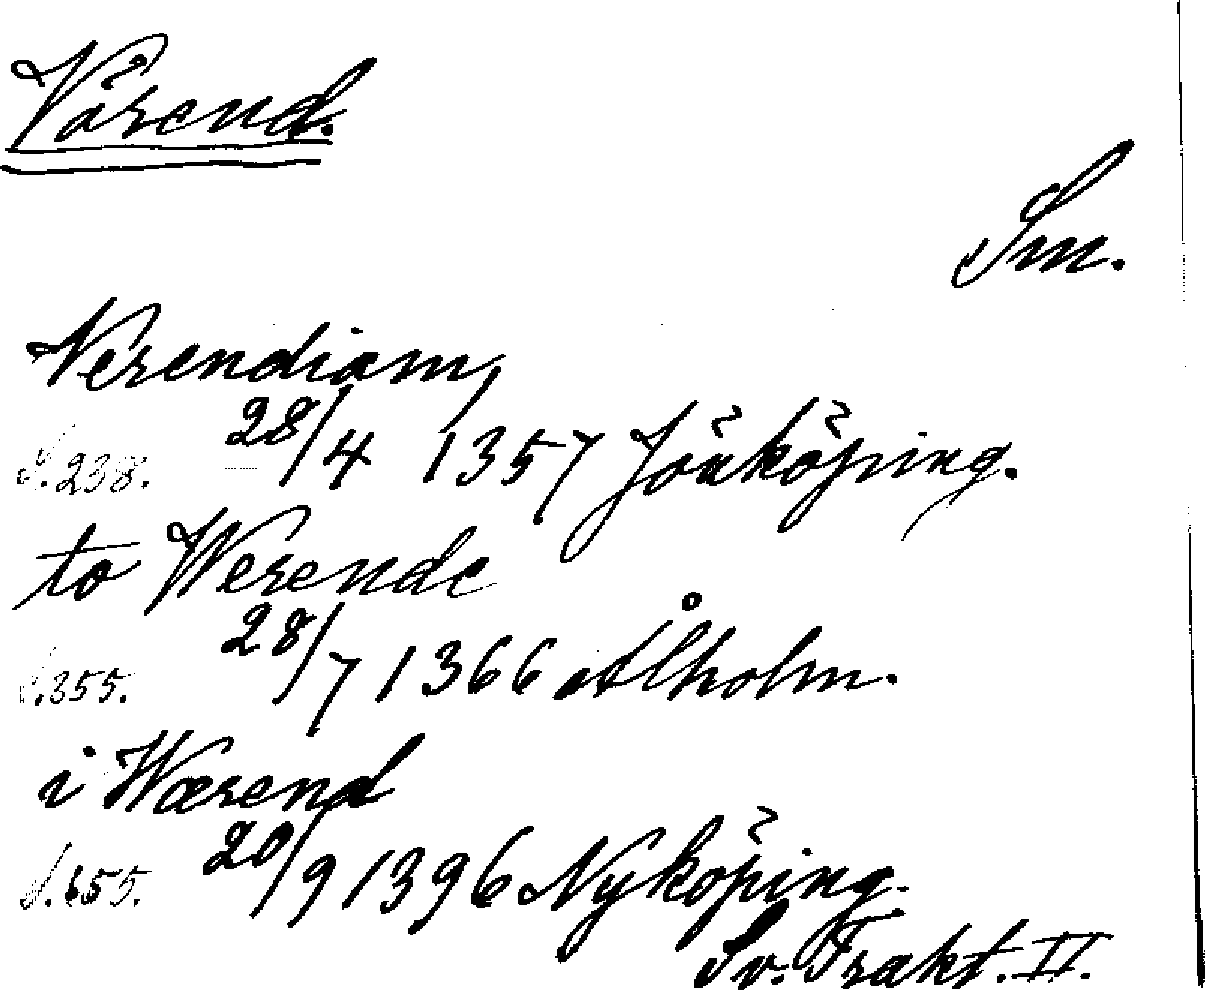 Värend.
Sm.
Verendiam,
S. 238. 28/4 1357 Jönköping.
to Werende
S. 355. 28/7 1366 Ålholm.
i Wærend
S. 655. 20/9 1396 Nyköping.
Sv. Trakt. II.